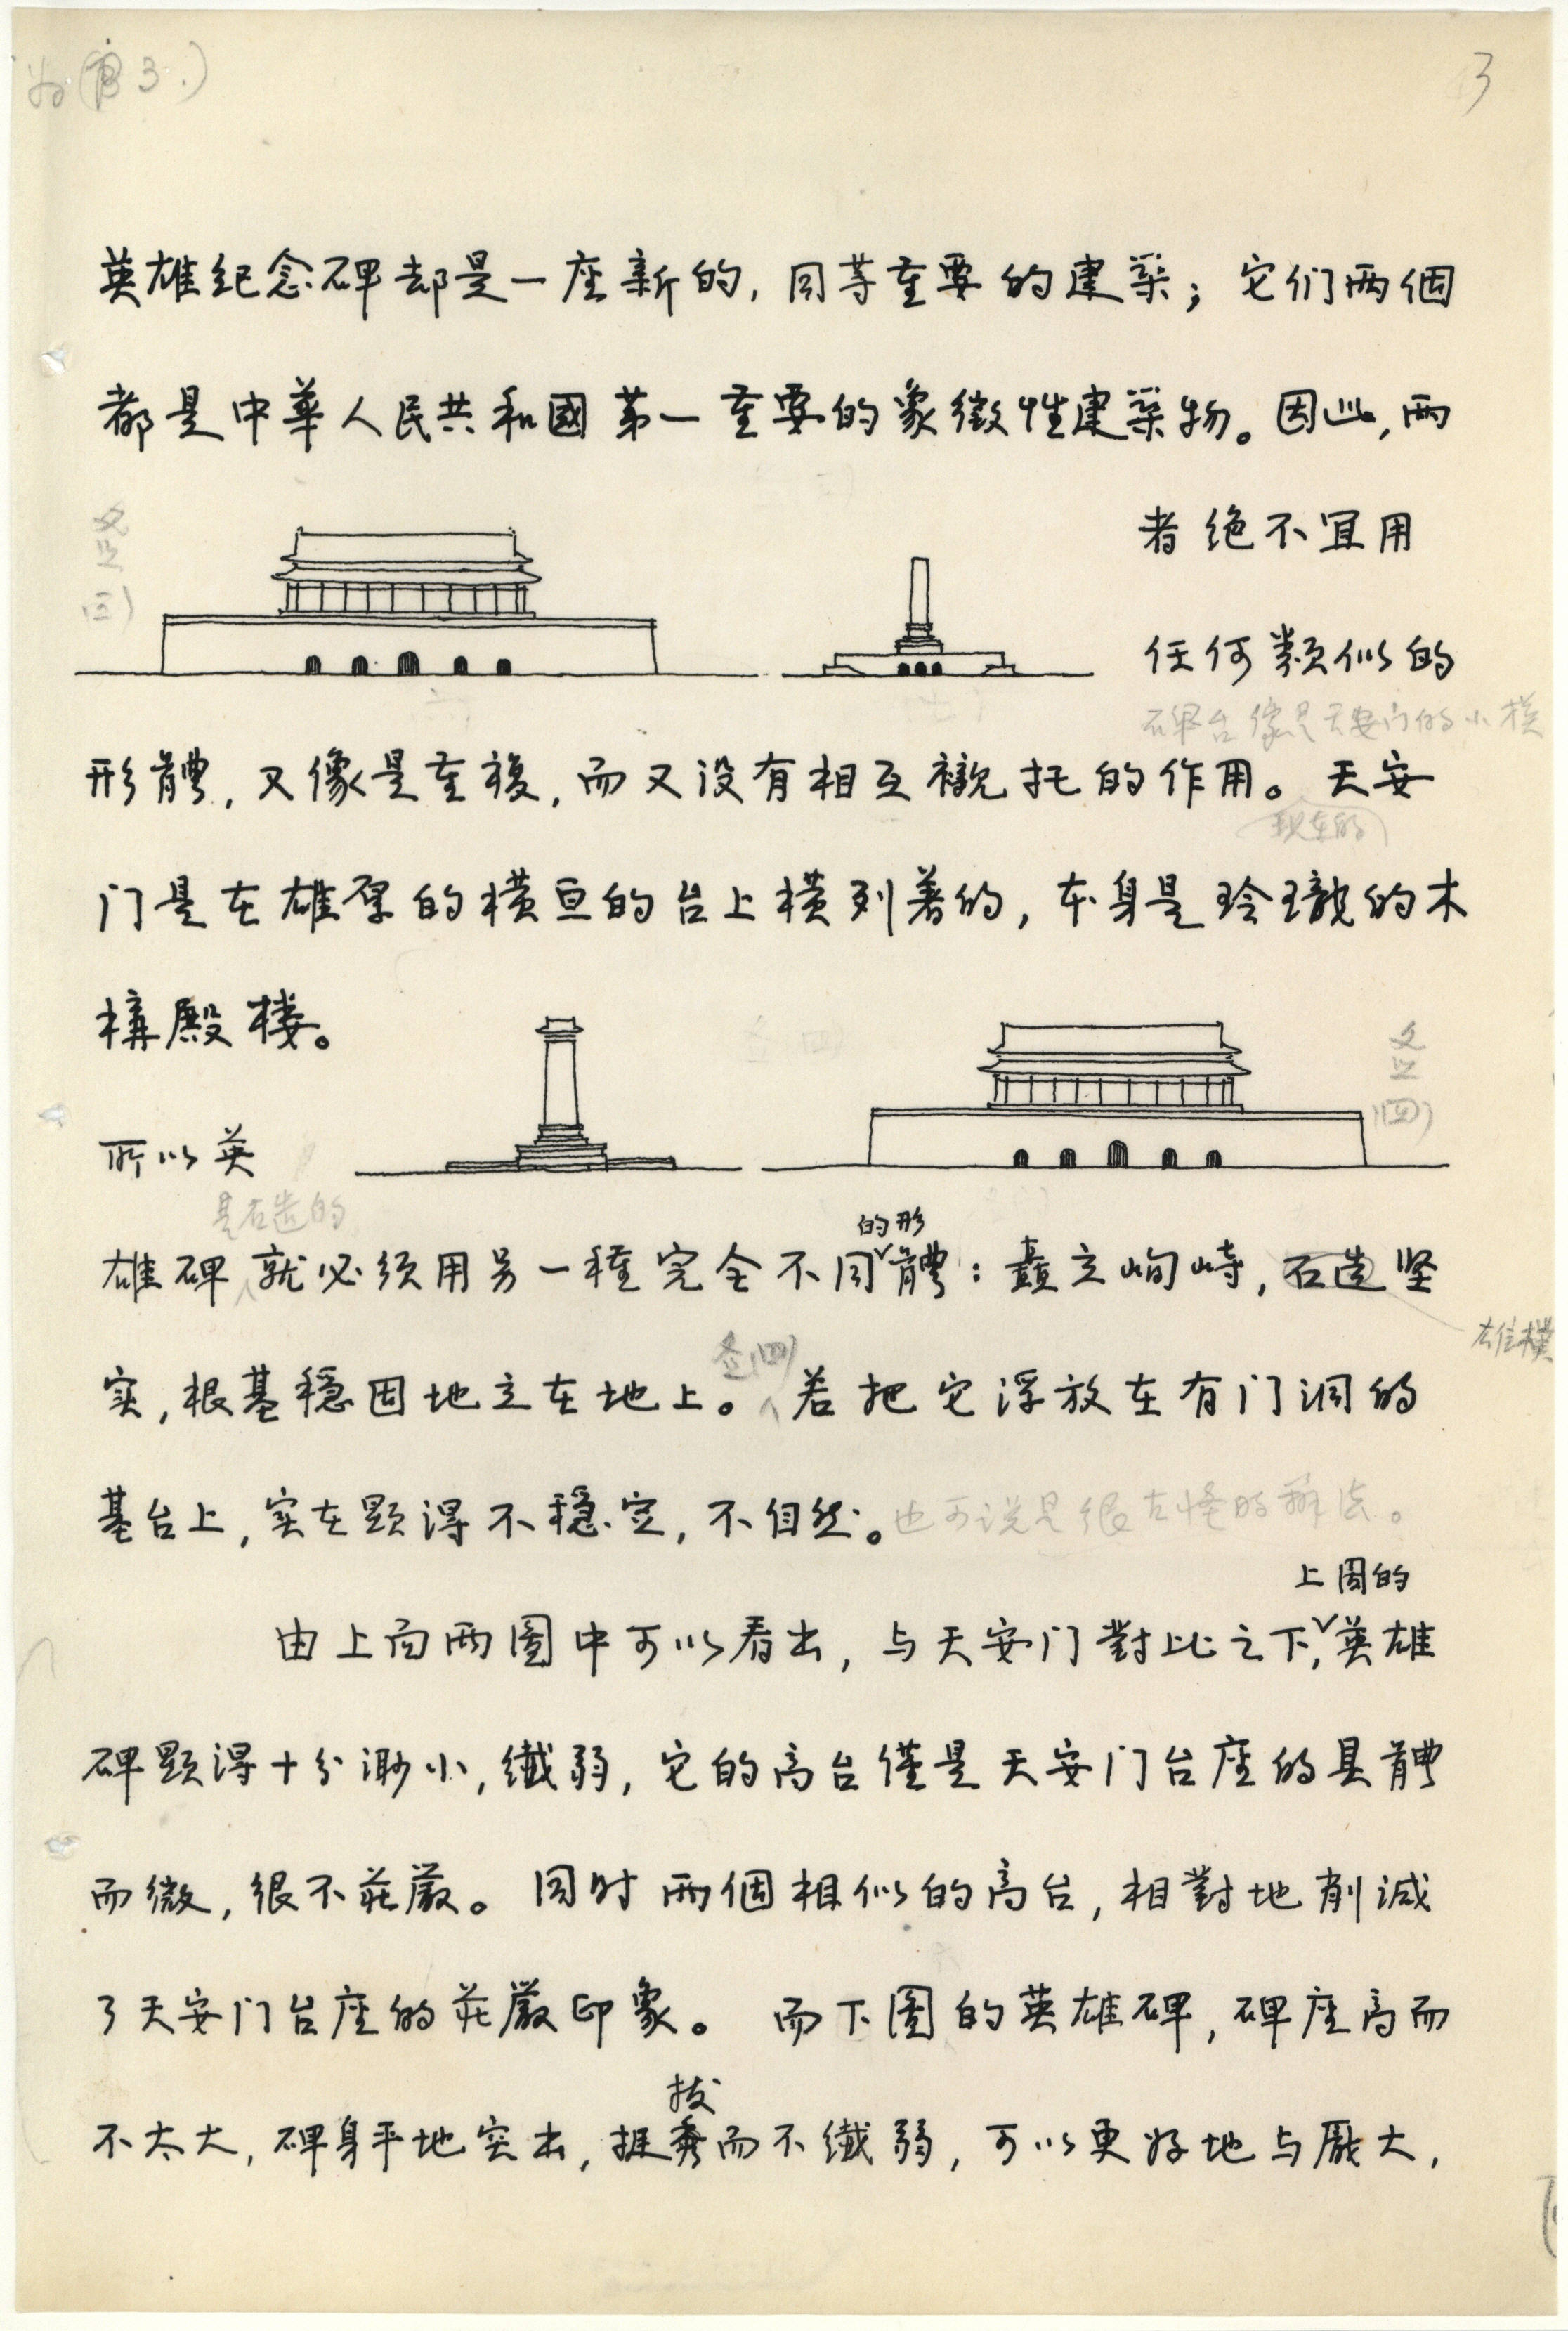 3
英雄纪念碑却是一座新的，同等重要的建築；它们两個
都是中華人民共和國第一重要的象徵性建築物。因此，两
者绝不宜用
任何類似的
碑台像是天安门的小模
形體，又像是重複，而又没有相互襯托的作用。天安
现在的
门是在雄厚的横亘的台上横列著的，本身是玲瓏的木
構殿楼。
所以英
是石造的
的形
雄碑就必须用另一種完全不同體：矗立峋峙，石造坚
雄樸
实，根基穩固地立在地上。若把它浮放在有门洞的
基台上，实在顕得不穩定，不自然。也可说是很古怪的辦法。
上圖的
由上面两圖中可以看出，与天安门對比之下，英雄
碑顕得十分渺小，纖弱，它的高台僅是天安门台座的具體
而微，很不莊嚴。同时两個相似的高台，相對地削減
了天安门台座的莊嚴印象。而下圖的英雄碑，碑座高而
拔
不太大，碑身平地突出，挺秀而不纖弱，可以更好地与龎大，